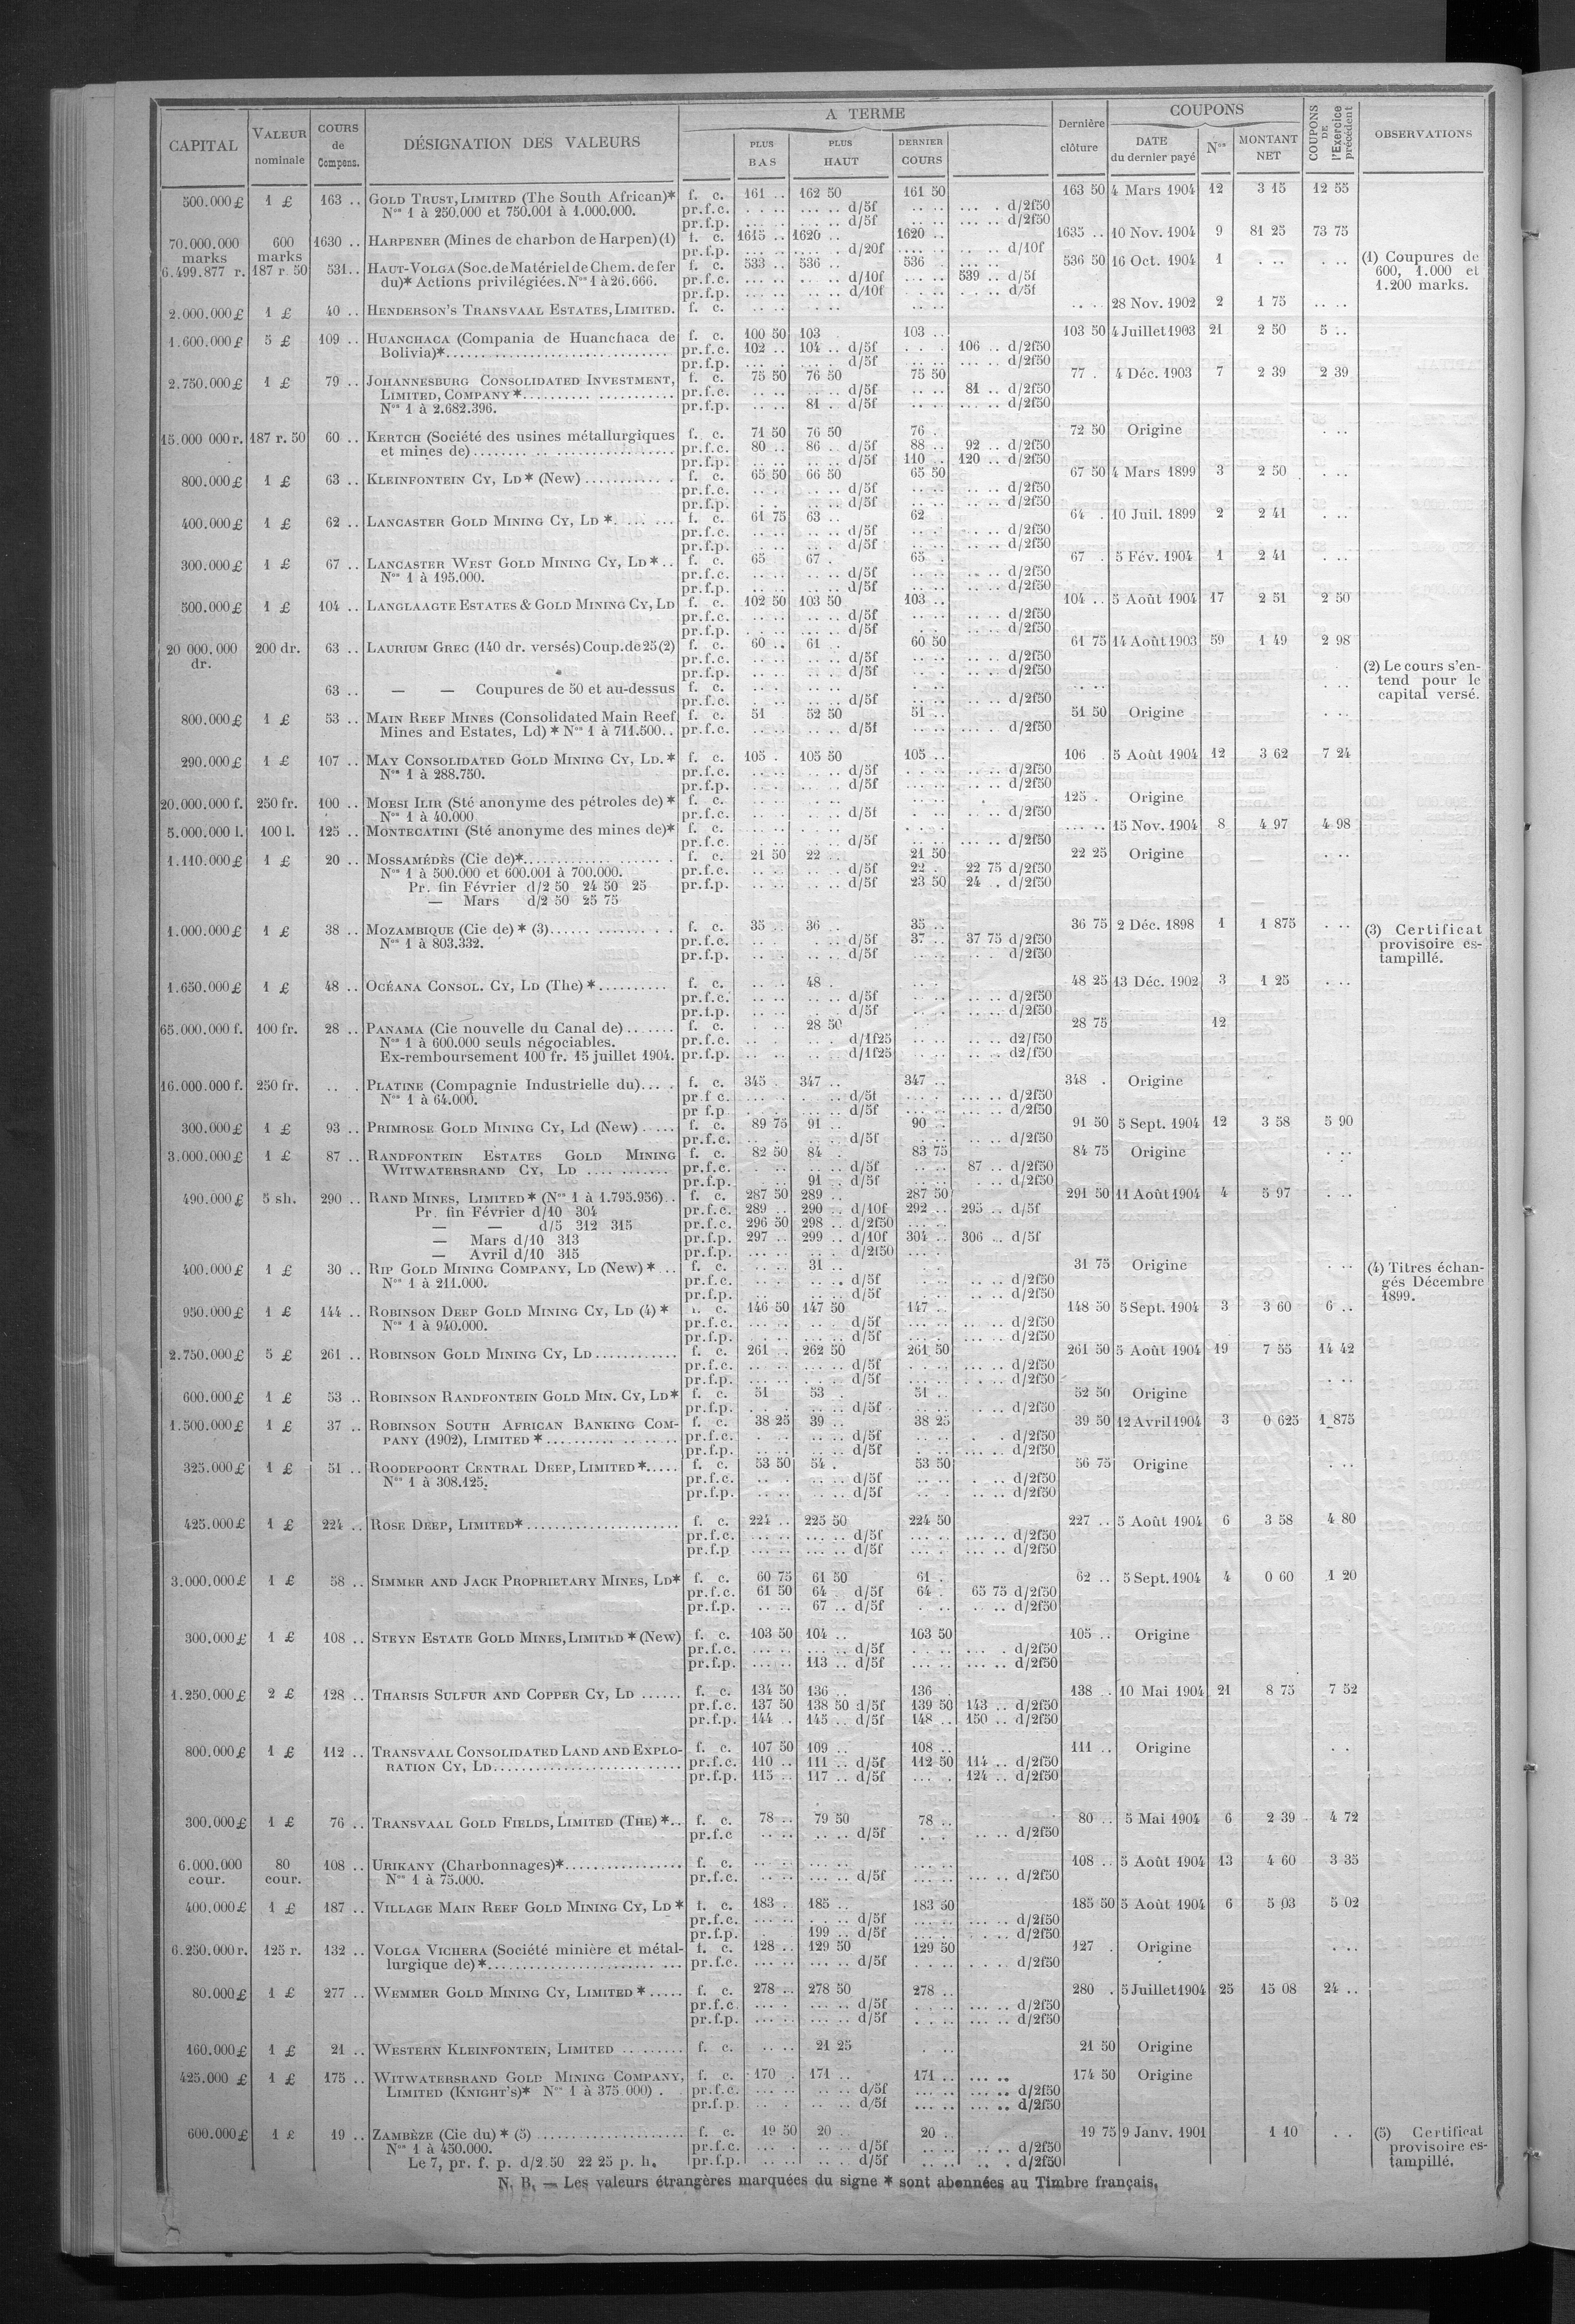 CAPITAL | VALEUR nominale | COURS de Compens. | DÉSIGNATION DES VALEURS | A TERME | Dernière clôture | COUPONS | COUPONS DE l'Exercice précédent | OBSERVATIONS
PLUS BAS | PLUS HAUT | DERNIER COURS | DATE du dernier payé | Nos | MONTANT NET
500.000 £ 1 £ 163 .. GOLD TRUST, LIMITED (The South African)* f. c. 161 .. 162 50 161 50 163 50 4 Mars 1904 12 3 15 12 55
Nos 1 à 250.000 et 750.001 à 1.000.000. pr.f.c. d/5f d/2f50
pr.f.p. d/5f d/2f50
70.000.000 marks 600 marks 1630 .. HARPENER (Mines de charbon de Harpen) (1) f. c. 1615 .. 1620 .. 1620 .. 1635 .. 10 Nov. 1904 9 81 25 73 75
pr.f.p. d/20f d/10f
6.499.877 r. 187 r. 50 531 .. HAUT-VOLGA (Soc. de Matériel de Chem. de fer f. c. 533 .. 536 .. 536 536 50 16 Oct. 1904 1 (1) Coupures de 600, 1.000 et 1.200 marks.
du)* Actions privilégiées. Nos 1 à 26.666. pr.f.c. d/10f 539 .. d/5f
pr.f.p. d/10f d/5f
2.000.000 £ 1 £ 40 .. HENDERSON'S TRANSVAAL ESTATES, LIMITED. f. c. 28 Nov. 1902 2 1 75
1.600.000 £ 5 £ 109 .. HUANCHACA (Compania de Huanchaca de f. c. 100 50 103 103 .. 103 50 4 Juillet 1903 21 2 50 5 ..
Bolivia)* pr.f.c. 102 .. 104 .. d/5f 106 .. d/2f50
pr.f.p. d/5f d/2f50
2.750.000 £ 1 £ 79 .. JOHANNESBURG CONSOLIDATED INVESTMENT, f. c. 75 50 76 50 75 50 77 . 4 Déc. 1903 7 2 39 2 39
LIMITED, COMPANY* pr.f.c. d/5f 81 .. d/2f50
Nos 1 à 2.682.396. pr.f.p. 81 . d/5f d/2f50
15.000 000 r. 187 r. 50 60 .. KERTCH (Société des usines métallurgiques f. c. 71 50 76 50 76 . 72 50 Origine
et mines de) pr.f.c. 80 .. 86 .. d/5f 88 .. 92 .. d/2f50
pr.f.p. d/5f 110 .. 120 .. d/2f50
800.000 £ 1 £ 63 .. KLEINFONTEIN CY, LD* (New) f. c. 65 50 66 50 65 50 67 50 4 Mars 1899 3 2 50
pr.f.c. d/5f d/2f50
pr.f.p. d/5f d/2f50
400.000 £ 1 £ 62 .. LANCASTER GOLD MINING CY, LD * f. c. 61 75 63 .. 62 64 . 10 Juil. 1899 2 2 41
pr.f.c. d/5f d/2f50
pr.f.p. d/5f d/2f50
300.000 £ 1 £ 67 .. LANCASTER WEST GOLD MINING CY, LD * f. c. 65 67 . 65 . 67 . 5 Fév. 1904 1 2 41
Nos 1 à 195.000. pr.f.c. d/5f d/2f50
pr.f.p. d/5f d/2f50
500.000 £ 1 £ 104 .. LANGLAAGTE ESTATES & GOLD MINING CY, LD f. c. 102 50 103 50 103 .. 104 .. 5 Août 1904 17 2 51 2 50
pr.f.c. d/5f d/2f50
pr.f.p. d/5f d/2f50
20 000.000 dr. 200 dr. 63 .. LAURIUM GREC (140 dr. versés) Coup. de 25 (2) f. c. 60 .. 61 .. 60 50 61 75 14 Août 1903 59 1 49 2 98
pr.f.c. d/5f d/2f50
pr.f.p. d/5f d/2f50
63 .. — — Coupures de 50 et au-dessus f. c. (2) Le cours s'entend pour le capital versé.
pr.f.c. d/5f d/2f50
800.000 £ 1 £ 53 .. MAIN REEF MINES (Consolidated Main Reef f. c. 51 52 50 51 .. 51 50 Origine
Mines and Estates, Ld) * Nos 1 à 711.500.. pr.f.c. d/5f d/2f50
290.000 £ 1 £ 107 .. MAY CONSOLIDATED GOLD MINING CY, LD. * f. c. 105 . 105 50 105 .. 106 5 Août 1904 12 3 62 7 24
Nos 1 à 288.750. pr.f.c. d/5f d/2f50
pr.f.p. d/5f d/2f50
20.000.000 f. 250 fr. 100 .. MOESI ILIR (Sté anonyme des pétroles de) * f. c. 125 . Origine
Nos 1 à 40.000 pr.f.c. d/5f d/2f50
5.000.000 l. 100 l. 125 .. MONTECATINI (Sté anonyme des mines de)* f. c. 15 Nov. 1904 8 4 97 4 98
pr.f.c. d/5f d/2f50
1.110.000 £ 1 £ 20 .. MOSSAMÉDÈS (Cie de)* f. c. 21 50 22 .. 21 50 22 25 Origine
Nos 1 à 500.000 et 600.001 à 700.000. pr.f.c. d/5f 22 . 22 75 d/2f50
Pr. fin Février d/2 50 24 50 25 pr.f.p. d/5f 23 50 24 . d/2f50
— Mars d/2 50 25 75
1.000.000 £ 1 £ 38 .. MOZAMBIQUE (Cie de) * (3) f. c. 35 .. 36 .. 35 .. 36 75 2 Déc. 1898 1 1 875 (3) Certificat provisoire estampillé.
Nos 1 à 803.332. pr.f.c. d/5f 37 .. 37 75 d/2f50
pr.f.p. d/5f d/2f50
1.650.000 £ 1 £ 48 .. OCÉANA CONSOL. CY, LD (The) * f. c. 48 . 48 25 13 Déc. 1902 3 1 25
pr.f.c. d/5f d/2f50
pr.f.p. d/5f d/2f50
65.000.000 f. 100 fr. 28 .. PANAMA (Cie nouvelle du Canal de) f. c. 28 50 28 75 12
Nos 1 à 600.000 seuls négociables. pr.f.c. d/1f25 d2/f50
Ex-remboursement 100 fr. 15 juillet 1904. pr.f.p. d/1f25 d2/f50
16.000.000 f. 250 fr. .. . PLATINE (Compagnie Industrielle du) f. c. 345 . 347 .. 347 .. 348 . Origine
Nos 1 à 64.000. pr.f c. d/5f d/2f50
pr f.p d/5f d/2f50
300.000 £ 1 £ 93 .. PRIMROSE GOLD MINING CY, Ld (New) f. c. 89 75 91 .. 90 .. 91 50 5 Sept. 1904 12 3 58 5 90
pr.f.c. d/5f d/2f50
3.000.000 £ 1 £ 87 .. RANDFONTEIN ESTATES GOLD MINING f. c. 82 50 84 . 83 75 84 75 Origine
WITWATERSRAND CY, LD pr.f.c. d/5f 87 .. d/2f50
pr.f.p. 91 . d/5f d/2f50
490.000 £ 5 sh. 290 .. RAND MINES, LIMITED * (Nos 1 à 1.795.956).. f. c. 287 50 289 .. 287 50 291 50 11 Août 1904 4 5 97
Pr. fin Février d/10 304 pr.f.c. 289 .. 290 .. d/10f 292 .. 295 .. d/5f
— — d/5 312 315 pr.f.c. 296 50 298 .. d/2f50
— Mars d/10 313 pr.f.p. 297 .. 299 .. d/10f 304 .. 306 .. d/5f
— Avril d/10 315 pr.f.p. d/2f50
400.000 £ 1 £ 30 .. RIP GOLD MINING COMPANY, LD (New) * f. c. 31 .. 31 75 Origine (4) Titres échangés Décembre 1899.
Nos 1 à 211.000. pr.f.c. d/5f d/2f50
pr.f.p. d/5f d/2f50
950.000 £ 1 £ 144 .. ROBINSON DEEP GOLD MINING CY, LD (4) * f. c. 146 50 147 50 147 .. 148 50 5 Sept. 1904 3 3 60 6 ..
Nos 1 à 940.000. pr.f.c. d/5f d/2f50
pr.f.p. d/5f d/2f50
2.750.000 £ 5 £ 261 .. ROBINSON GOLD MINING CY, LD f. c. 261 .. 262 50 261 50 261 50 5 Août 1904 19 7 55 14 42
pr.f.c. d/5f d/2f50
pr.f.p. d/5f d/2f50
600.000 £ 1 £ 53 .. ROBINSON RANDFONTEIN GOLD MIN. CY, LD* f. c. 51 53 . 51 .. 52 50 Origine
pr.f.p. d/5f d/2f50
1.500.000 £ 1 £ 37 .. ROBINSON SOUTH AFRICAN BANKING COM- f. c. 38 25 39 .. 38 25 39 50 12 Avril 1904 3 0 625 1 875
PANY (1902), LIMITED * pr.f.c. d/5f d/2f50
pr.f.p. d/5f d/2f50
325.000 £ 1 £ 51 .. ROODEPOORT CENTRAL DEEP, LIMITED * f. c. 53 50 54 . 53 50 56 75 Origine
Nos 1 à 308.125. pr.f.c. d/5f d/2f50
pr.f.p. d/5f d/2f50
425.000 £ 1 £ 224 .. ROSE DEEP, LIMITED* f. c. 224 .. 225 50 224 50 227 .. 5 Août 1904 6 3 58 4 80
pr.f.c. d/5f d/2f50
pr.f.p d/5f d/2f50
3.000.000 £ 1 £ 58 .. SIMMER AND JACK PROPRIETARY MINES, LD* f. c. 60 75 61 50 61 . 62 .. 5 Sept. 1904 4 0 60 1 20
pr.f.c. 61 50 64 . d/5f 64 . 65 75 d/2f50
pr.f.p. 67 .. d/5f d/2f50
300.000 £ 1 £ 108 .. STEYN ESTATE GOLD MINES, LIMITED * (New) f. c. 103 50 104 .. 103 50 105 .. Origine
pr.f.c. d/5f d/2f50
pr.f.p. 113 .. d/5f d/2f50
1.250.000 £ 2 £ 128 .. THARSIS SULFUR AND COPPER CY, LD f. c. 134 50 136 .. 136 . 138 .. 10 Mai 1904 21 8 75 7 52
pr.f.c. 137 50 138 50 d/5f 139 50 143 .. d/2f50
pr.f.p. 144 . 145 .. d/5f 148 .. 150 .. d/2f50
800.000 £ 1 £ 112 .. TRANSVAAL CONSOLIDATED LAND AND EXPLO- f. c. 107 50 109 .. 108 .. 111 .. Origine
RATION CY, LD pr.f.c. 110 .. 111 .. d/5f 112 50 114 .. d/2f50
pr.f.p. 115 .. 117 .. d/5f 124 .. d/2f50
300.000 £ 1 £ 76 .. TRANSVAAL GOLD FIELDS, LIMITED (THE) * f. c. 78 .. 79 50 78 .. 80 .. 5 Mai 1904 6 2 39 4 72
pr.f.c d/5f d/2f50
6.000.000 cour. 80 cour. 108 .. URIKANY (Charbonnages)* f. c. 108 .. 5 Août 1904 13 4 60 3 35
Nos 1 à 75.000. pr.f.c. d/5f d/2f50
400.000 £ 1 £ 187 .. VILLAGE MAIN REEF GOLD MINING CY, LD * f. c. 183 . 185 .. 183 50 185 50 5 Août 1904 6 5 03 5 02
pr.f.c. d/5f d/2f50
pr.f.p. 199 .. d/5f d/2f50
6.250.000 r. 125 r. 132 .. VOLGA VICHERA (Société minière et métal- f. c. 128 .. 129 50 129 50 127 . Origine
lurgique de) * pr.f.c. d/5f d/2f50
80.000 £ 1 £ 277 .. WEMMER GOLD MINING CY, LIMITED * f. c. 278 .. 278 50 278 .. 280 . 5 Juillet 1904 25 15 08 24 ..
pr.f.c d/5f d/2f50
pr.f.p. d/5f d/2f50
160.000 £ 1 £ 21 .. WESTERN KLEINFONTEIN, LIMITED f. c. 21 25 21 50 Origine
425.000 £ 1 £ 175 .. WITWATERSRAND GOLD MINING COMPANY, f. c. 170 . 171 .. 171 .. 174 50 Origine
LIMITED (KNIGHT'S)* Nos 1 à 375 000) . pr.f.c. d/5f d/2f50
pr.f.p. d/5f d/2f50
600.000 £ 1 £ 19 .. ZAMBÈZE (Cie du) * (5) f. c. 19 50 20 .. 20 .. 19 75 9 Janv. 1901 1 10 (5) Certificat provisoire estampillé.
Nos 1 à 450.000. pr.f.c. d/5f d/2f50
Le 7, pr. f. p. d/2 50 22 25 p. h. pr.f.p. d/5f d/2f50
N. B. — Les valeurs étrangères marquées du signe * sont abonnées au Timbre français.